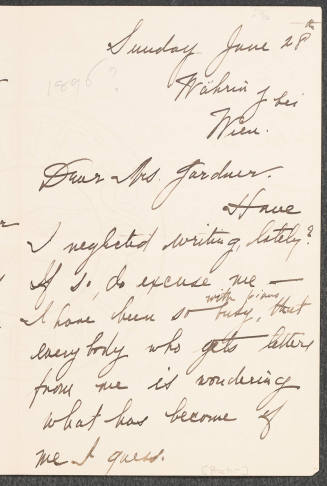 Sunday June 28th
1896?
Währing bei
Wien.
Dear Mrs. Gardner.
Have
I neglected writing, lately?
If so, do excuse me —
with piano
I have been so busy, that
everybody who gets letters
from me is wondering
what has become of
me I guess.